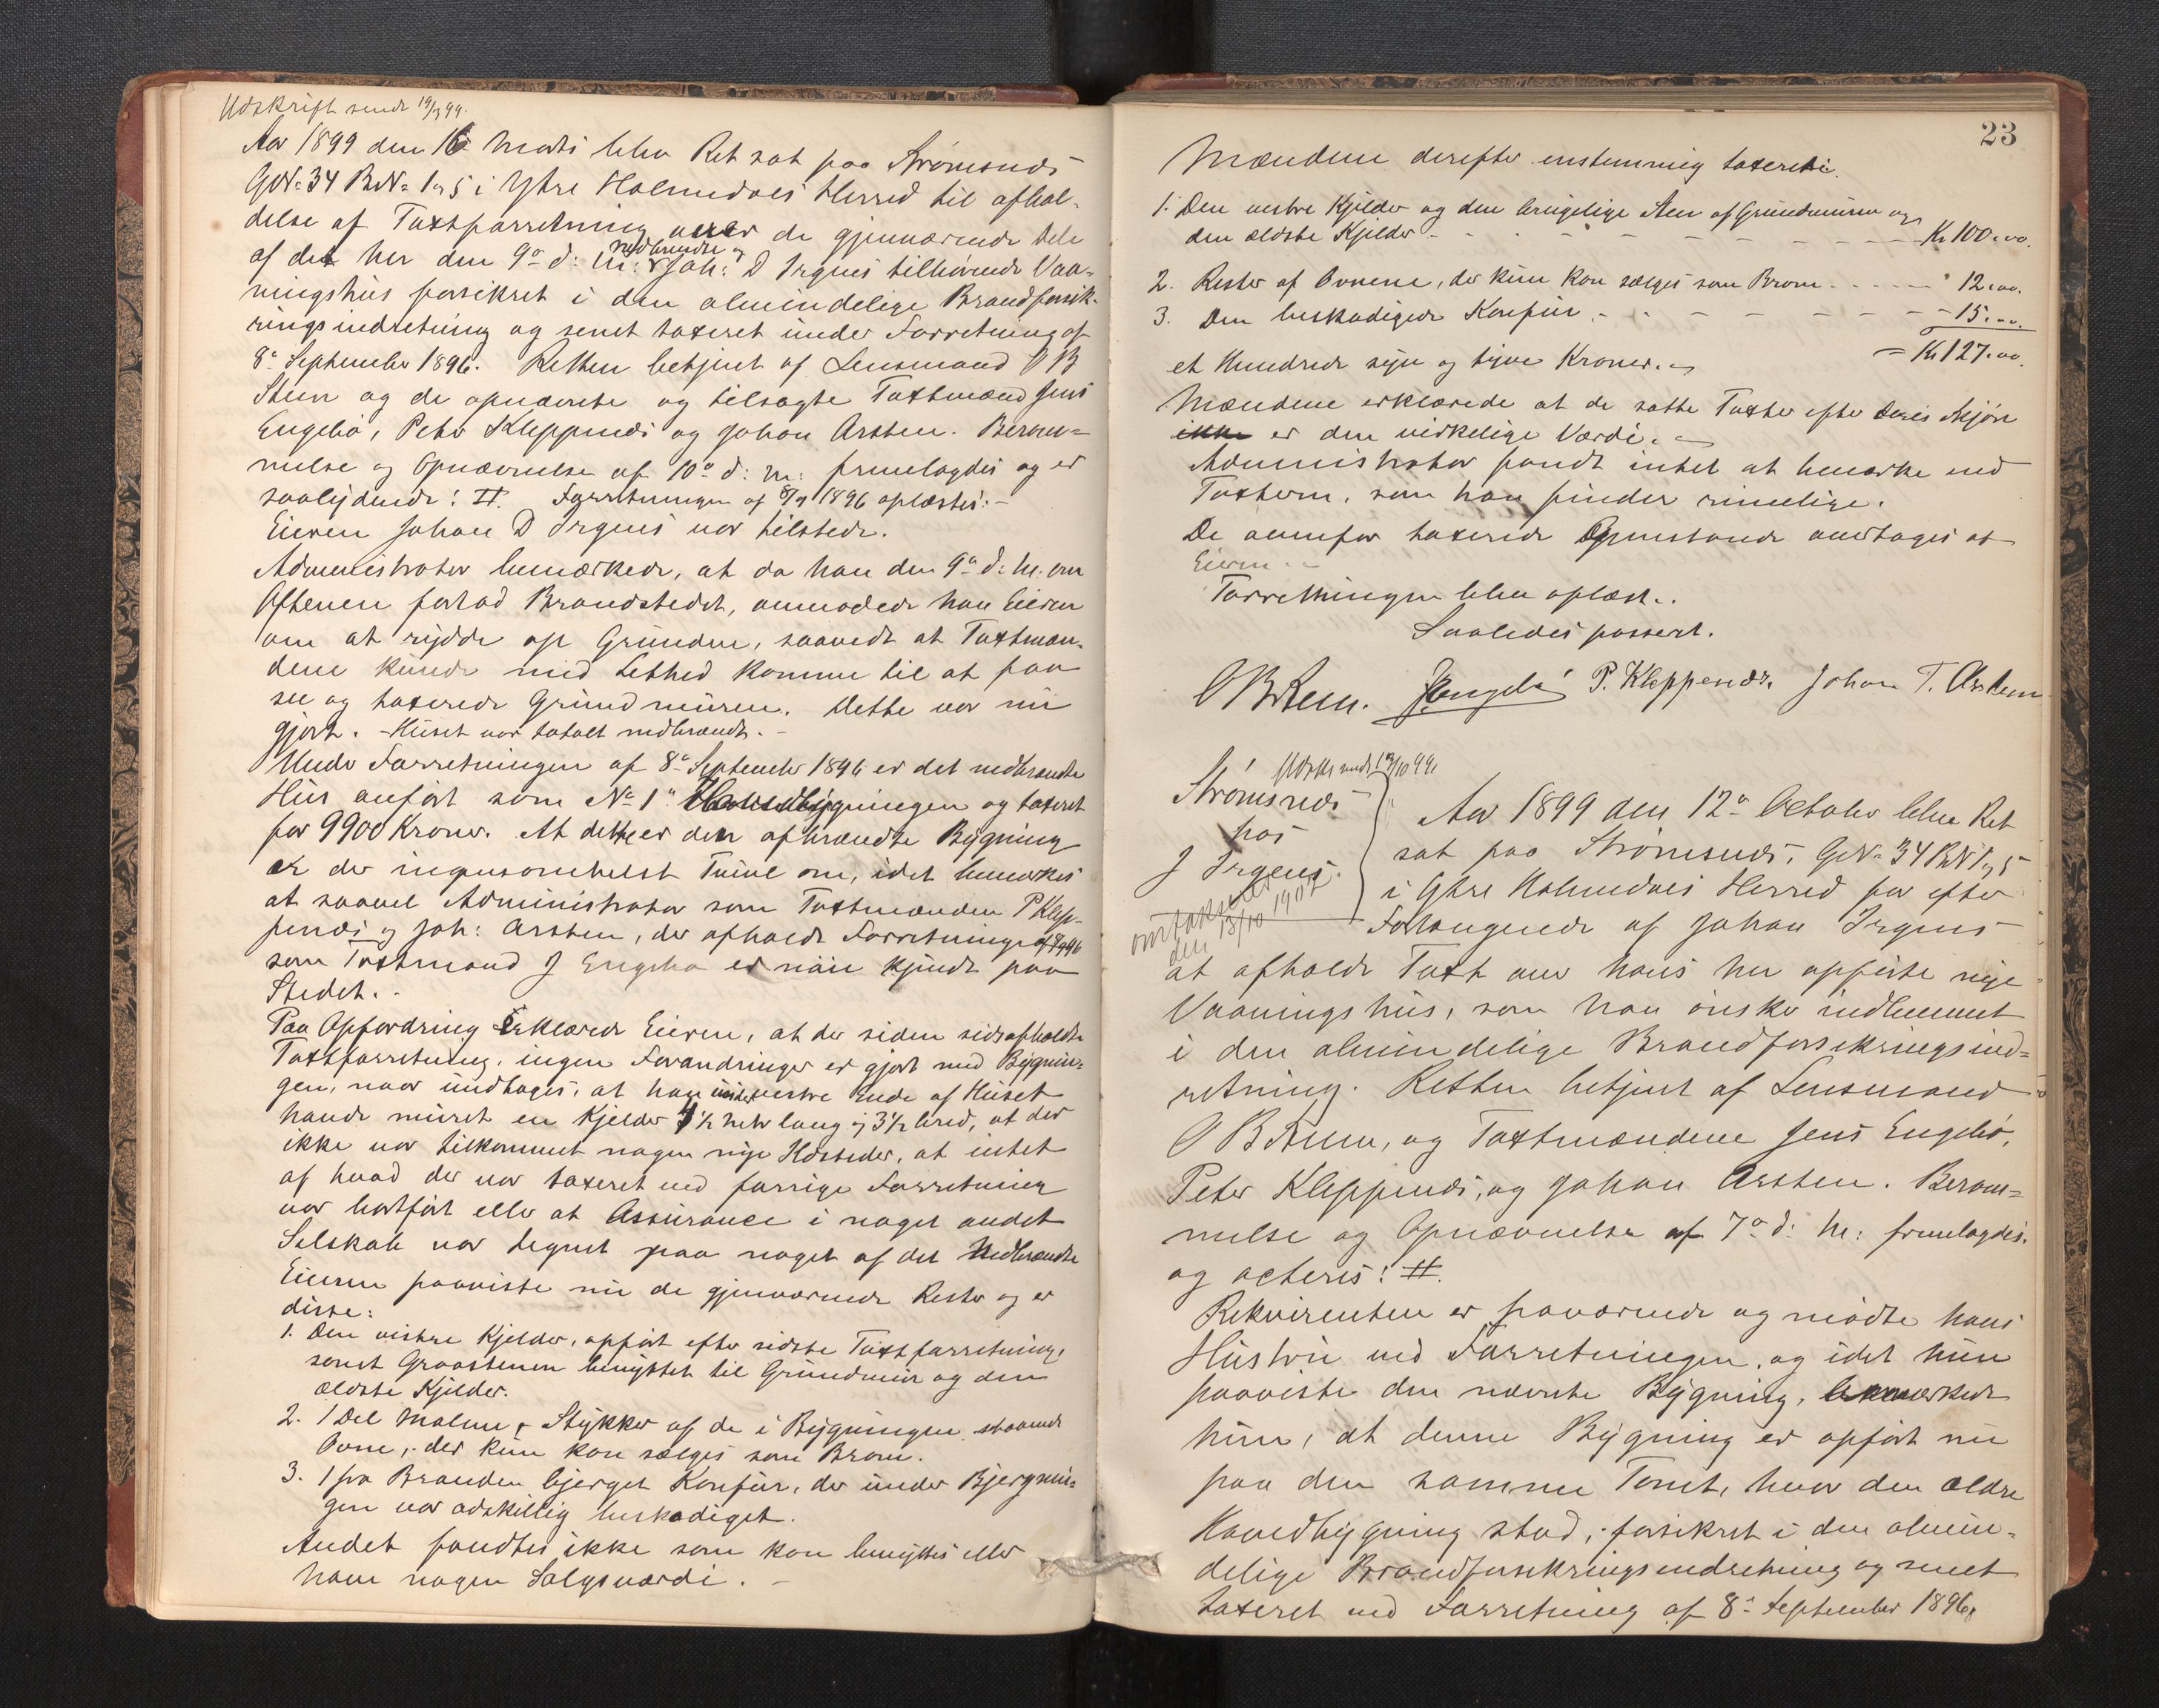 Udskrift sendt 19/3 99.
Aar 1899 den 16 Marts blev Ret sat paa Strømsnæs
GNo 34 BNo 1 og 5 i Ytre Holmedals Herred til afhol-
delse af Taxtforretning over de gjenværende Dele
af det her den 9de d: M: nedbrændte og Joh: D Irgens tilhørende Vaa-
ningshus forsikret i den almindelige Brandforsik-
ringsindretning og senest taxeret under Forretning af
8de September 1896. Retten betjent af Lensmand O B
Steen og de opnævnte og tilsagte Taxtmænd Jens
Engebø, Peter Kleppenæs og Johan Arsten. Beram-
melse og Opnævnelse af 10de d: M: fremlagdes og er
saalydende: #. Forretningen af 8/9 1896 oplæstes. -
Eieren Johan D Irgens var tilstede.
Administrator bemærkede, at da han den 9de d: M: om
Aftenen forlod Brandstedet, anmodede han Eieren
om at rydde op Grunden, saavidt at Taxtmæn-
dene kunde med Lethed komme til at paa
see og taxerede Grundmuren. Dette var nu
gjort. - Huset var totalt nedbrændt. -
Under Forretningen af 8de September 1896 er det nedbrændte
Hus anført som No 1 Hovedbygningen og taxeret
for 9900 Kroner. At dette er den afbrændte Bygning
er der ingensomhelst Tvivl om, idet bemærkes
at saavel Administrator som Taxtmændene P Klep-
penæs og Joh: Arsten, der afholdt Forretninge af 8/9 96
som Taxtmand J Engebø er nøie kjendt paa
Stedet. -
Paa Opfordring erklærede Eieren, at der siden sidst afholdte
Taxtforretning, ingen Forandringer er gjort med Bygnin-
gen, naar undtages, at han under vestre Ende af Huset
havde muret en Kjelder 4 1/2 Meter lang og 3 1/2 bred, at der
ikke var tilkommet nogen nye Ildsteder, at intet
af hvad der var taxeret ved forrige Forretning
var bortført eller at Assurance i noget andet
Selskab var tegnet paa noget af det Nedbrændte
Eieren paaviste nu de gjenværende Rester og er
disse:
1. Den vestre Kjelder, opført efter sidste Taxtforretning,
samt Graastenen benyttet til Grundmur og den
ældste Kjelder.
2. 1 Del Malm, Stykker af de i Bygningen staaende
Ovne, der kun kan sælges som Brom.
3. 1 fra Branden bjerget Komfur, der under Bjergnin-
gen var adskillig beskadiget.
Andet fandtes ikke som kan benyttes eller
have nogen Salgsværdi. -
23
Mændene derefter enstemmig taxerede.
1. Den vestre Kjelder og den brugelige Sten af Grundmuren og
den ældste Kjelder - - - Kr 100.00.
2. Rester af Ovnene, der kun kan sælges som Brom - - - " 12.00.
3. Den beskadigede Komfur - - - - 15.00.
et Hundrede syv og tyve Kroner. = Kr 127.00.
Mændene erklærede at de satte Taxter efter deres Skjøn
ikke er den virkelige Værdi.
Administrator fandt intet at bemærke ved
Taxterne, som han finder rimelige.
De ovenfor taxerede Gjenstande overtages af
Eieren. -
Forretningen blev oplæst.
Saaledes passert.
O B Steen. J Engebø P. Kleppenæs. Johan T. Arsten
Udskr sendt 19/10 99
Strømsnæs
hos
J Irgens.
omtakseret
den 13/10 1907
Aar 1899 den 12te October blev Ret
sat paa Strømsnæs, GNo 34 BNo 1 og 5
i Ytre Holmedals Herred for efter
Forlangende af Johan Irgens
at afholde Taxt over hans her opførte nye
Vaaningshus, som han ønsker indlemmet
i den almindelige Brandforsikringsind-
retning. Retten betjent af Lensmand
O B Steen, og Taxtmændene Jens Engebø,
Peter Kleppenæs, og Johan Arsten. Beram-
melse og Opnævnelse af 7de d: M: fremlagdes.
og acteres: #.
Rekvirenten er fraværende og mødte hans
Hustru ved Forretningen, og idet hun
paaviste den nævnte Bygning, bemærkede
hun, at denne Bygning er opført nu
paa den samme Tomt, hvor den ældre
Hovedbygning stod, forsikret i den almin-
delige Brandforsikringsindretning og senest
taxeret ved Forretning af 8de September 1896,